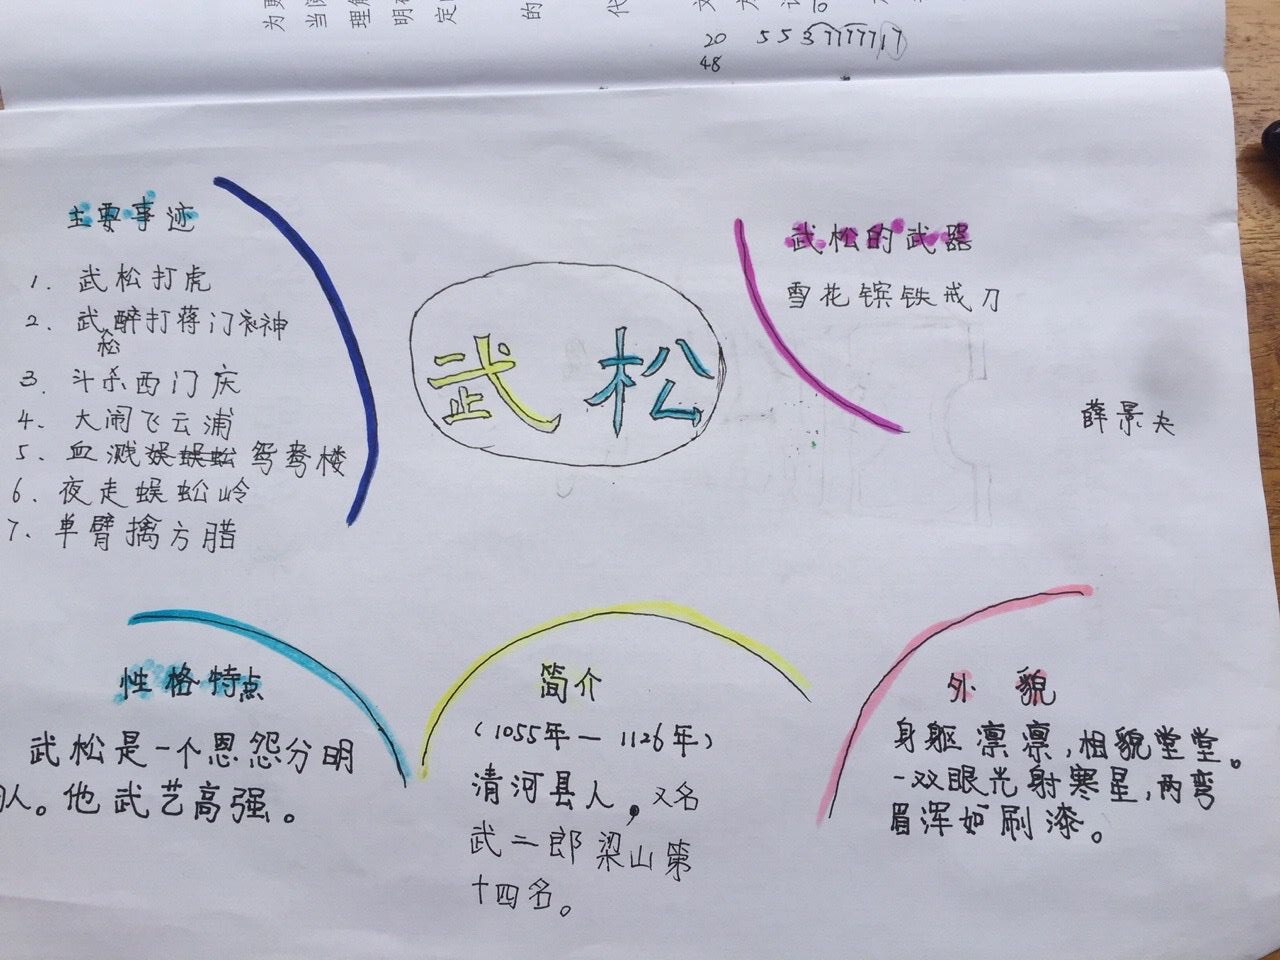 20
48
5 5 3 7 7 7 7 7 1 7
主要事迹
1. 武松打虎
2. 武松醉打蒋门神
3. 斗杀西门庆
4. 大闹飞云浦
5. 血溅鸳鸯楼
6. 夜走蜈蚣岭
7. 单臂擒方腊
武松
武松的武器
雪花镔铁戒刀
薛景夫
性格特点
武松是一个恩怨分明
人。他武艺高强。
简介
(1055年—1126年)
清河县人，又名
武二郎梁山第
十四名。
外貌
身躯凛凛，相貌堂堂。
一双眼光射寒星，两弯
眉浑如刷漆。